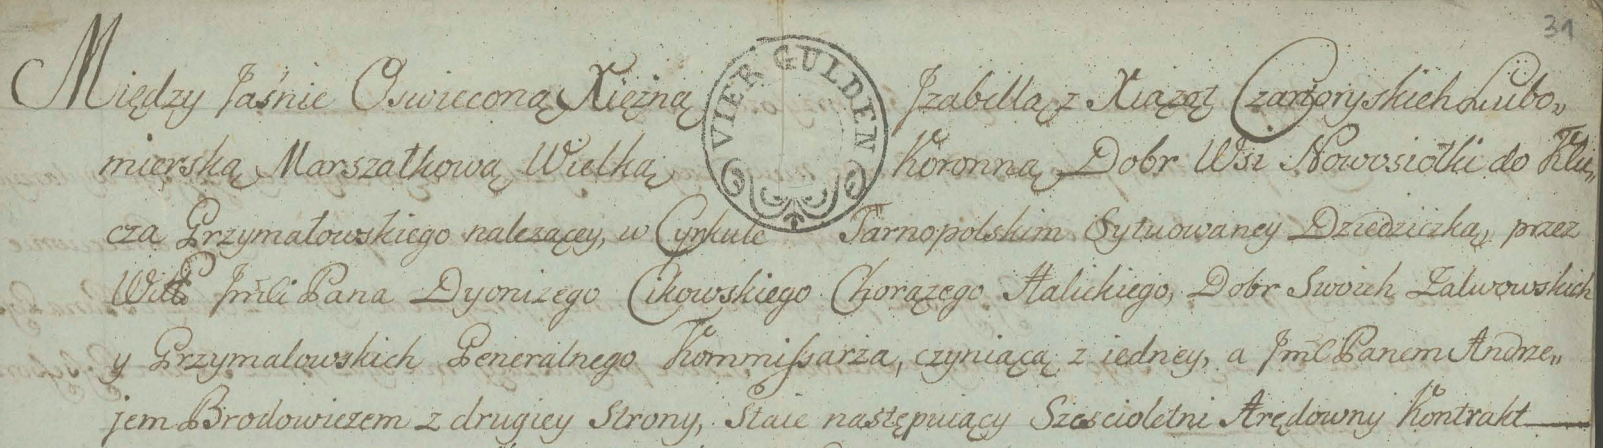 31
VIER GULDEN
Między Jaśnie Oswieconą Xiężną Jzabellą z Xiążąt Czartoryskich Lubo„
mierską Marszałkową Wielką Koronną, Dobr Wsi Nowosiołki do Klu„
cza Grzymałowskiego nalezącey, w Cyrkule Tarnopolskim Sytuowaney Dziedziczką, przez
Jmći Pana Dyonizego Cikowskiego Chorązego Halickiego, Dobr Swoich Zalwowskich
y Grzymalowskich Generalnego Kommissarza, czyniącą z iedney, a Jmć Panem Andrze„
jem Brodowiczem z drugiey Strony, Staie następuiący Szescioletni Arędowny Kontrakt